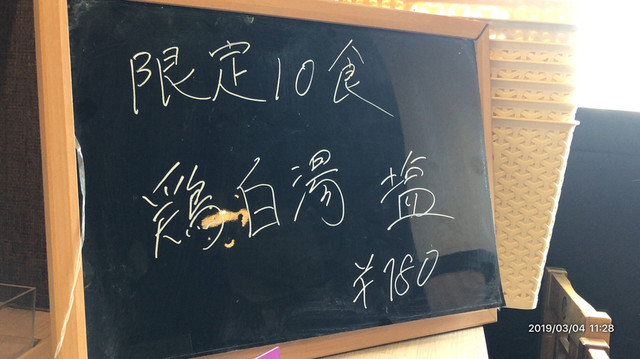 限定10食
鶏白湯 塩
¥780
2019/03/04 11:28